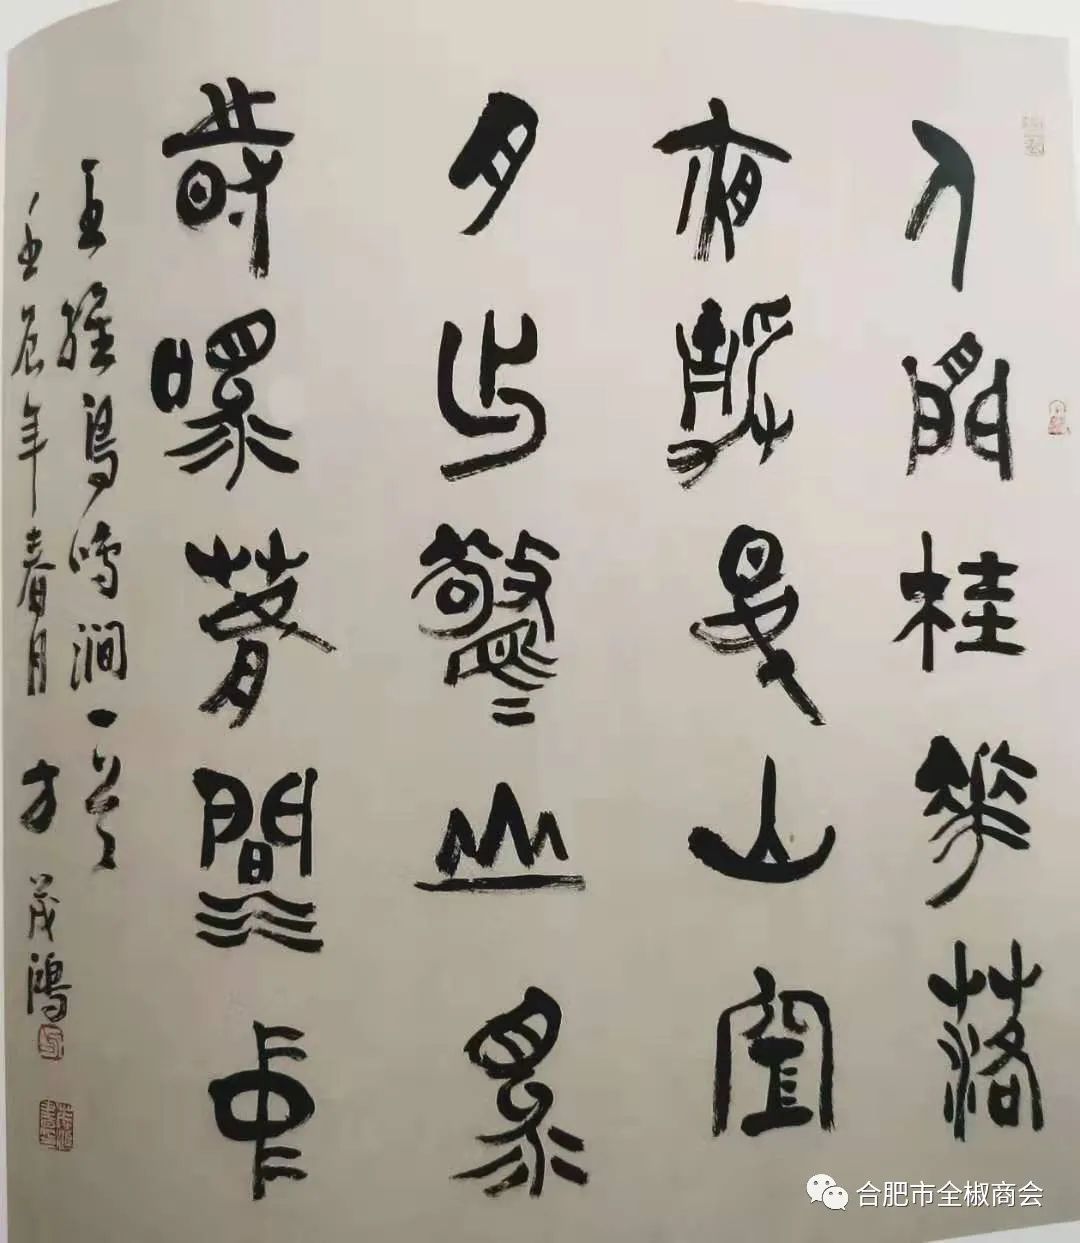 人閒桂花落
夜靜春山空
月出驚山鳥
時鳴春澗中
王維鳥鳴澗一首
壬辰年春月 方茂鴻
合肥市全椒商会